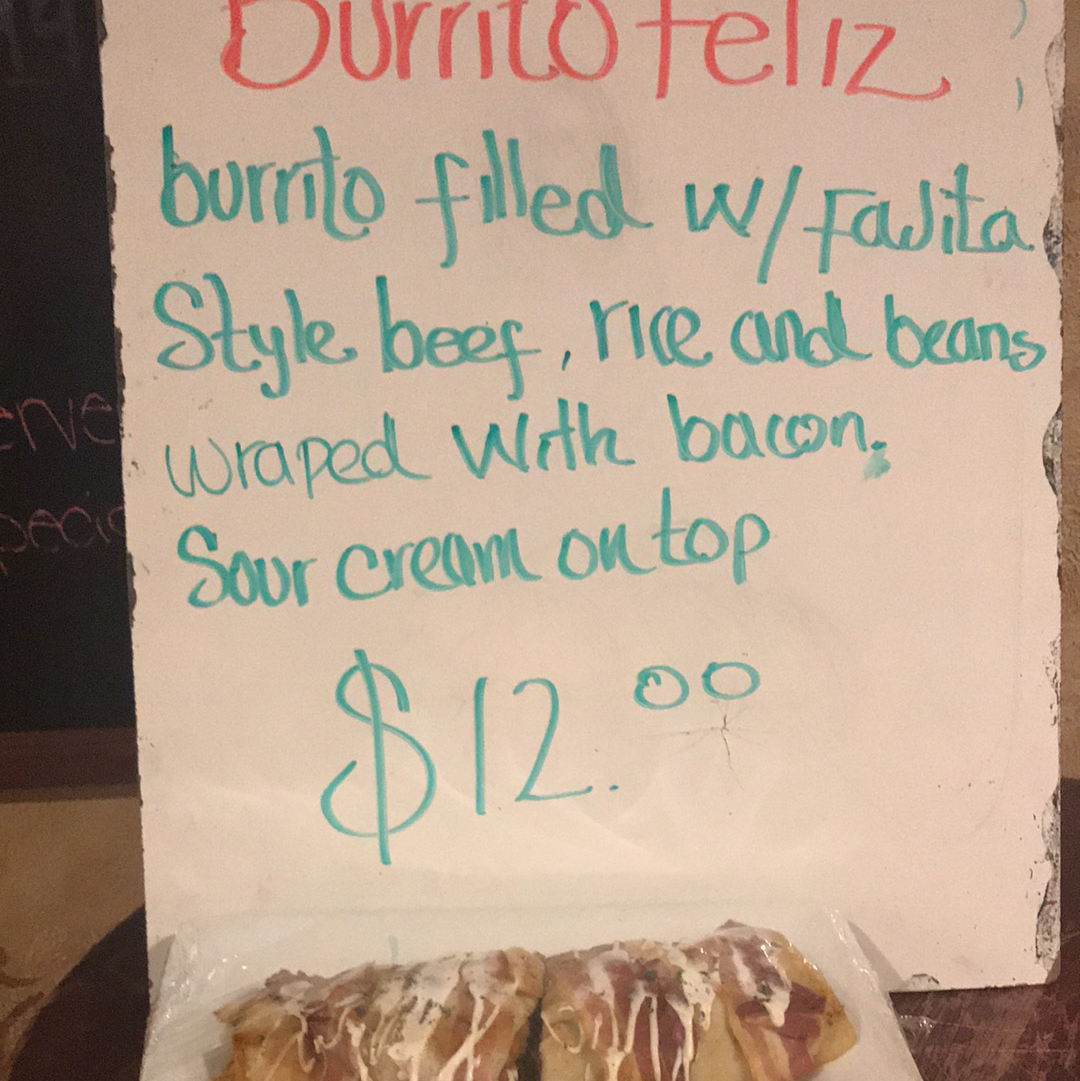 Burrito feliz
burrito filled w/ Fajita
Style beef, rice and beans
wraped with bacon,
Sour cream on top
$12.00